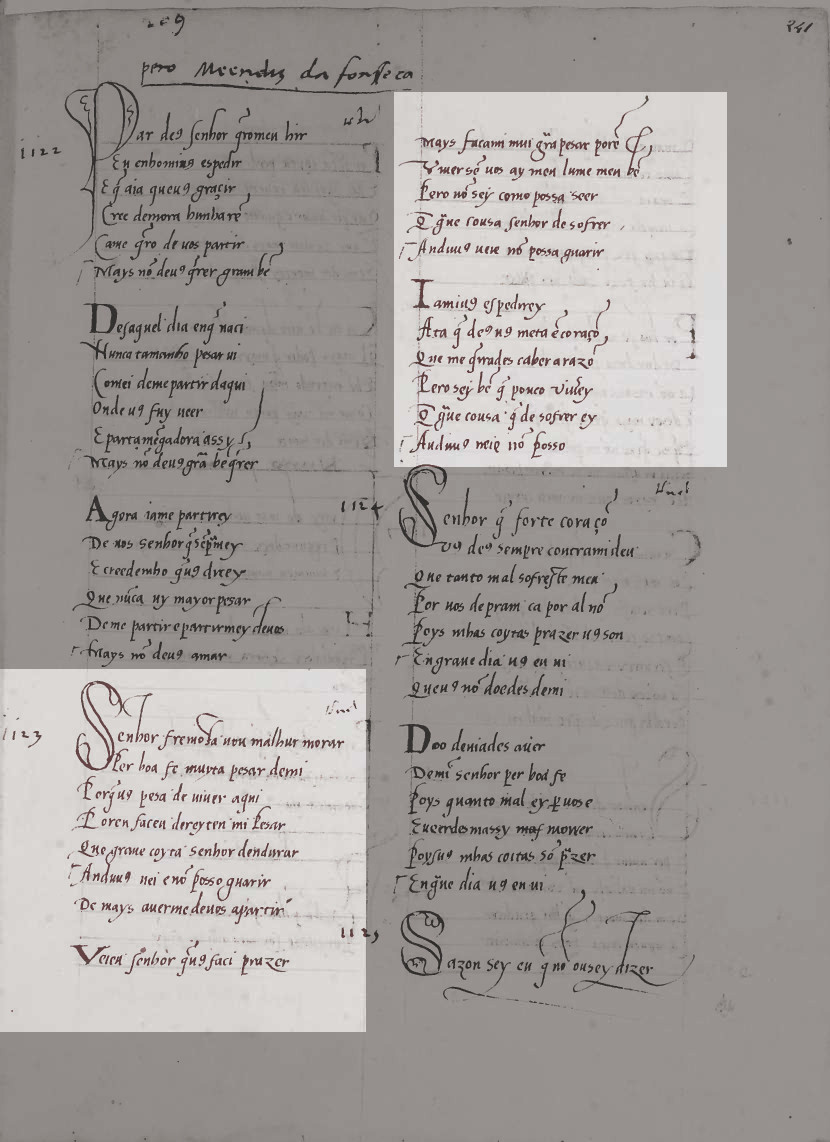 209
241
pero Meendiz da fonsseca
1122
Par de9 senhor q̃romeu hir
Eu enhomiz9 espedir
E q̃ aia queu9 graçir
Cree demora hunha rẽ
Came q̃ro de uos partir
Mays nõ deu9 q̃rer gram bẽ
Desaquel dia enq̃ naci
Nunca tamanho pesar ui
Comei deme partir daqui
Onde u9 fuy ueer
E partamẽgadora assy
Mays nõ deu9 grã bẽ q̃rer
Agora iame partirey
De uos senhor
E creedemho q̃u9 direy
Que nũca uy mayor pesar
De me partir e partirmey deuos
Mays nõ deu9 amar
1123
Senhor fremosa uou malhur morar
Per boa fe muyta pesar demi
Porq̃u9 pesa de uiuer aqui
Poren facen dereyten mi pesar
Que graue coyta senhor dendurar
Anduu9 uei e nõ posso guarir
De mays auerme deuos apartir
Veiea senhor q̃u9 faci prazer
Mays facami mui grã pesar porẽ
Viuer sẽ uos ay meu lume meu bẽ
Pero nõ sey como possa seer
Q̃ g̃ue cousa senhor de sofrer
Anduu9 ueie nõ possa guarir
Iamiu9 espedirey
Ata q̃ de9 u9 meta ẽ coraçõ
Que me q̃irades caber a razõ
Pero sey bẽ q̃ pouco viu̾ey
Q̃ g̃ue cousa q̃ de sofrer ey
Anduu9 ueie nõ posso
1124
Senhor q̃ forte coraçõ
Vu9 de9 sempre contrami deu
Que tanto mal sofreste meu
Por uos de pram ca por al nõ
Poys mhas coytas prazer u9 son
En graue dia u9 eu ui
Queu9 nõ doedes demi
Doo deuiades auer
Demĩ senhor per boa fe
Poys quanto mal ey ꝑ uos e
E ueerdes massy morrer
Poysu9 mhas coitas sõ p̃zer
En g̃ue dia u9 en ui
1125
Sazon sey eu q̃ nõ ousey dizer